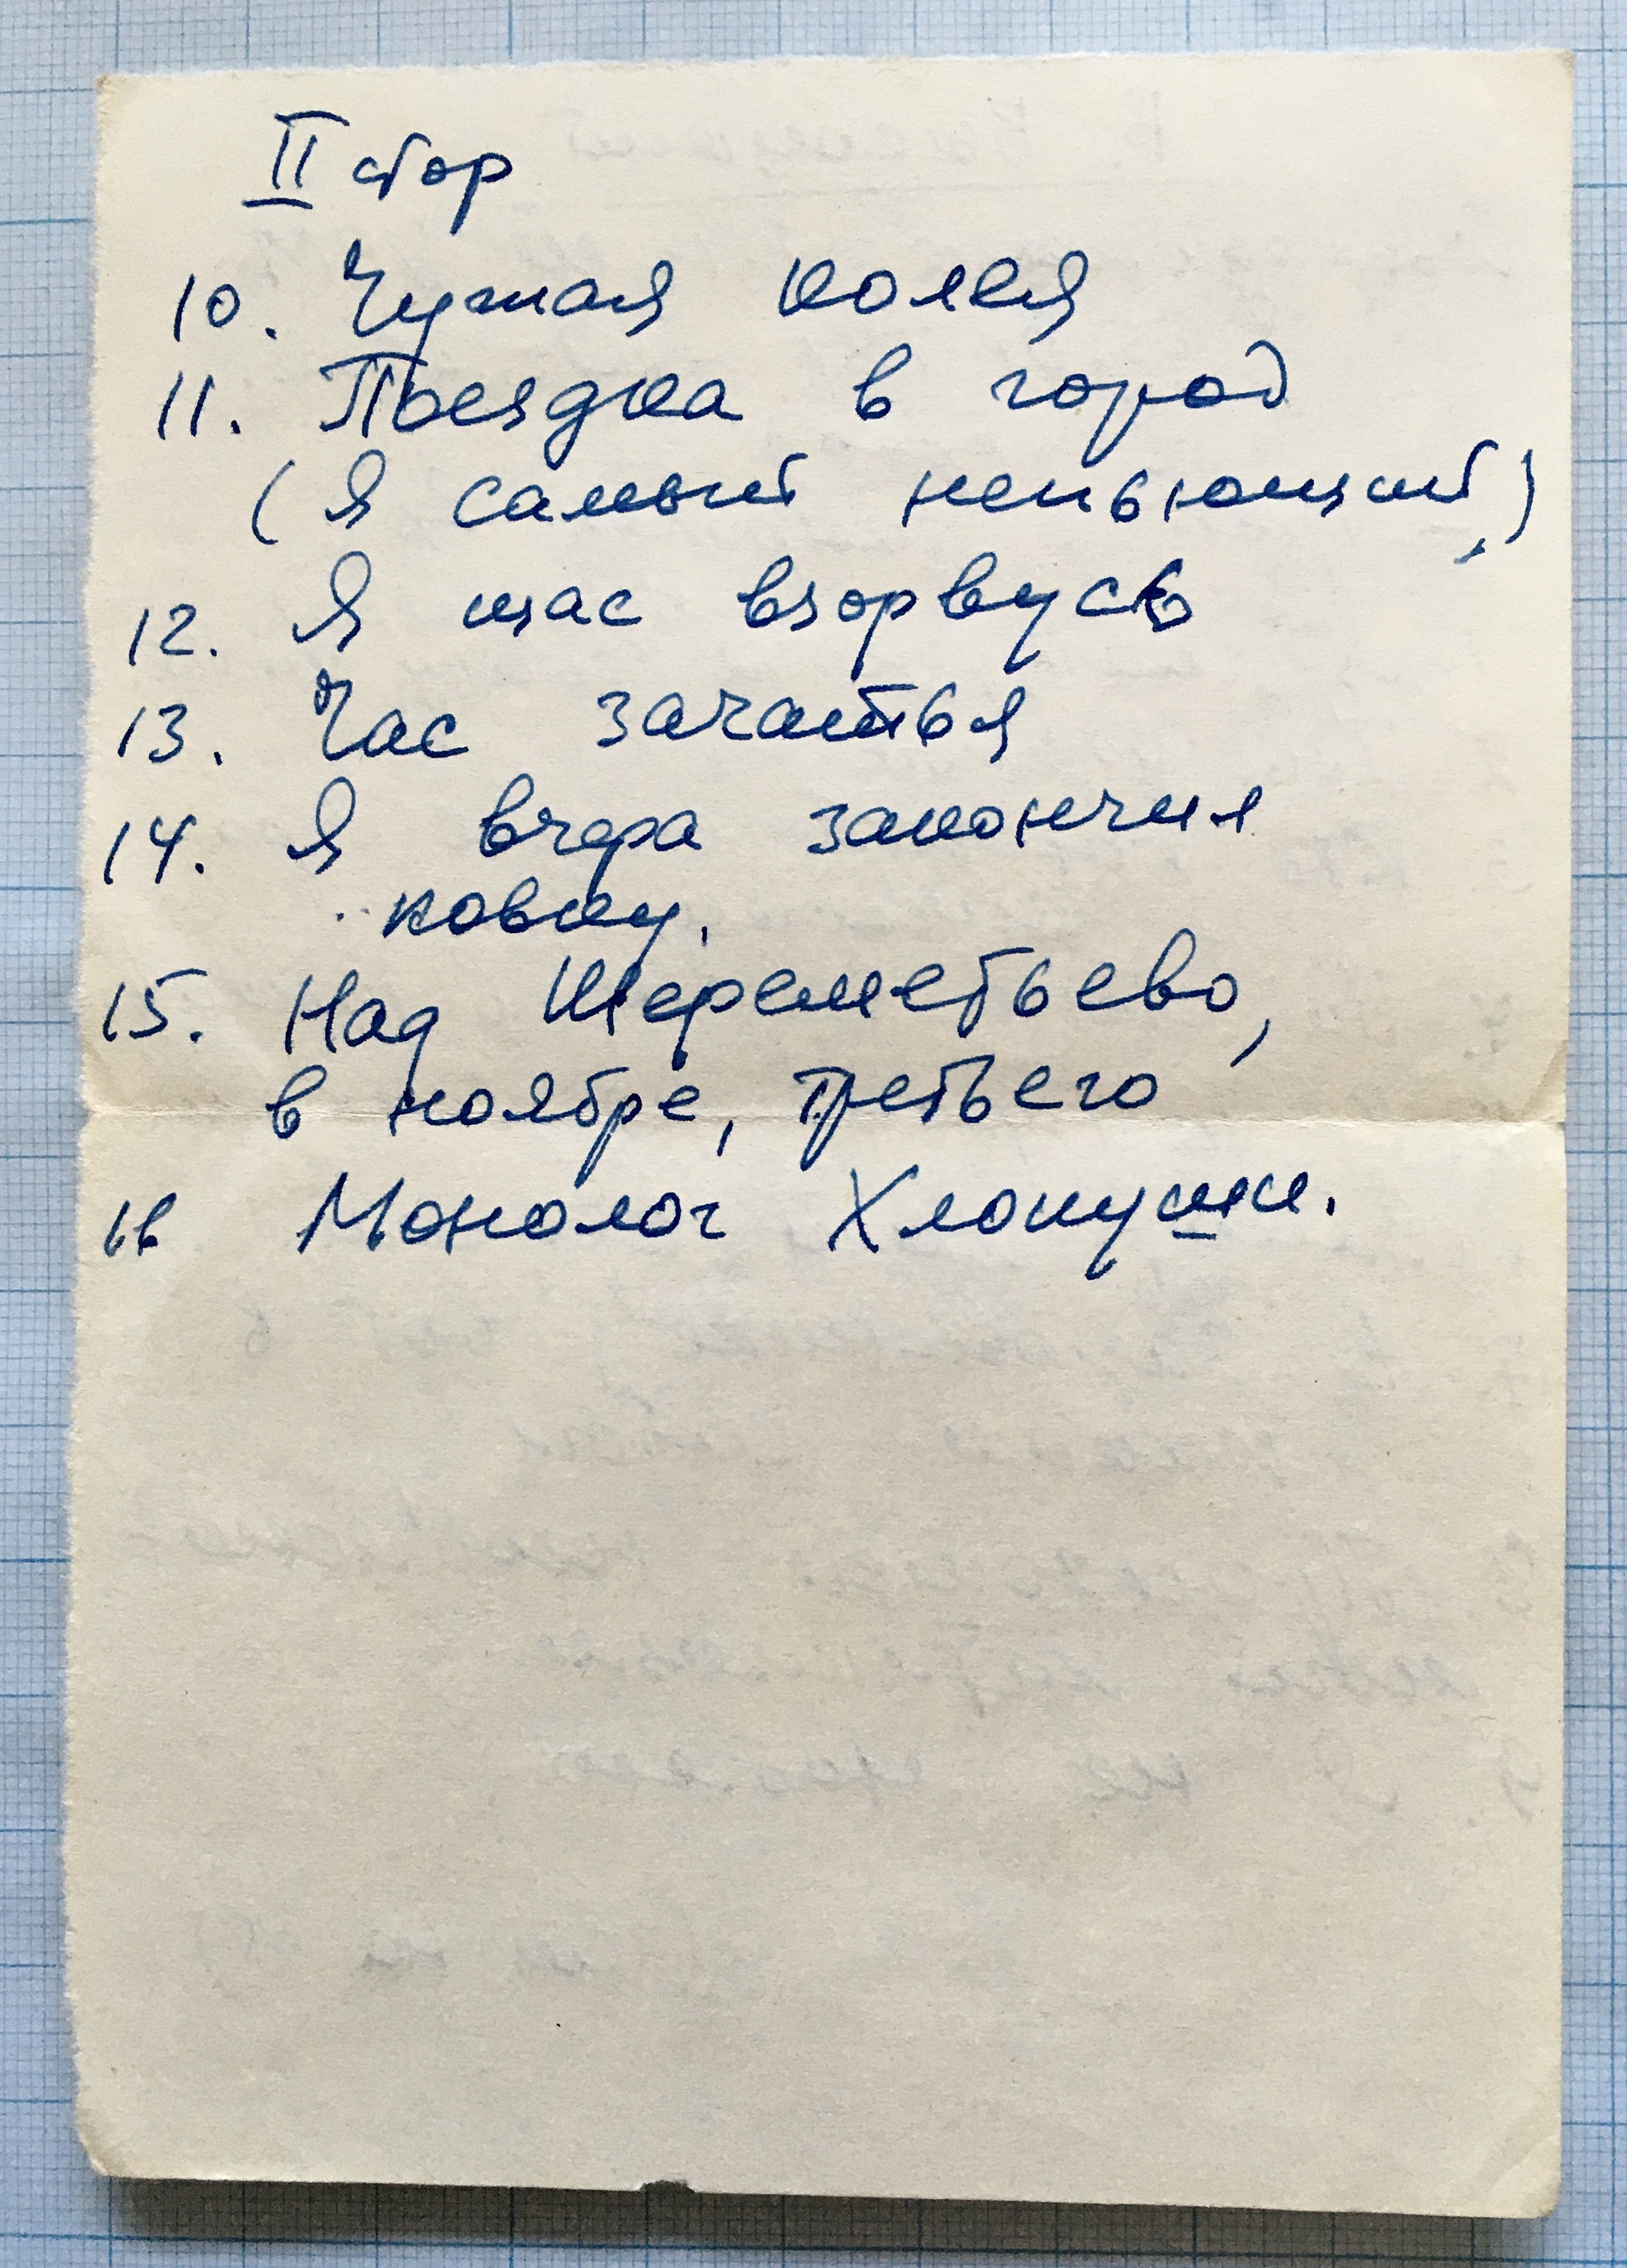 II стор
10. Чужая колея
11. Поездка в город
(Я самый непьющий)
12. Я щас взорвусь
13. Час зачатья
14. Я вчера закончил
ковку.
15. Над Шереметьево,
в ноябре, третьего
16 Монолог Хлопуши.